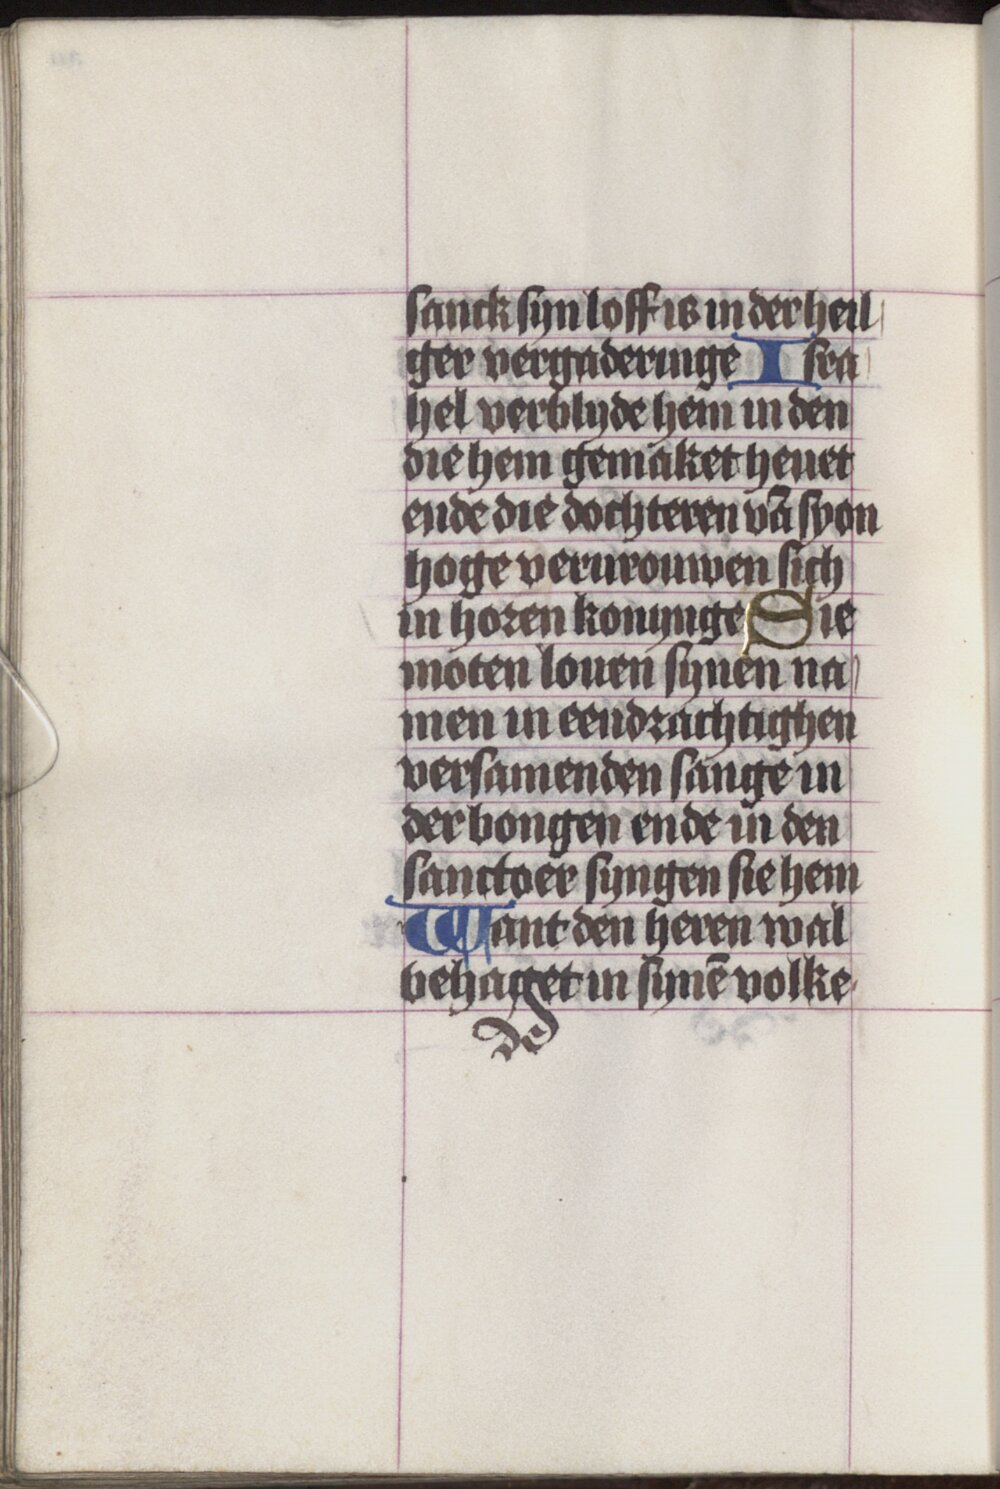 sanck syn loff is in der heil
ger vergaderinge Isra
hel verblyde hem in den
die hem gemaket heuet
ende die dochteren vā syon
hoge vervrouwen sich
in horen konynge Sie
moten louen synen na
men in eendrachtighen
versamenden sange in
der bongen ende in den
sanctoer syngen sie hem
Want den heren wal
behaget in synē volke